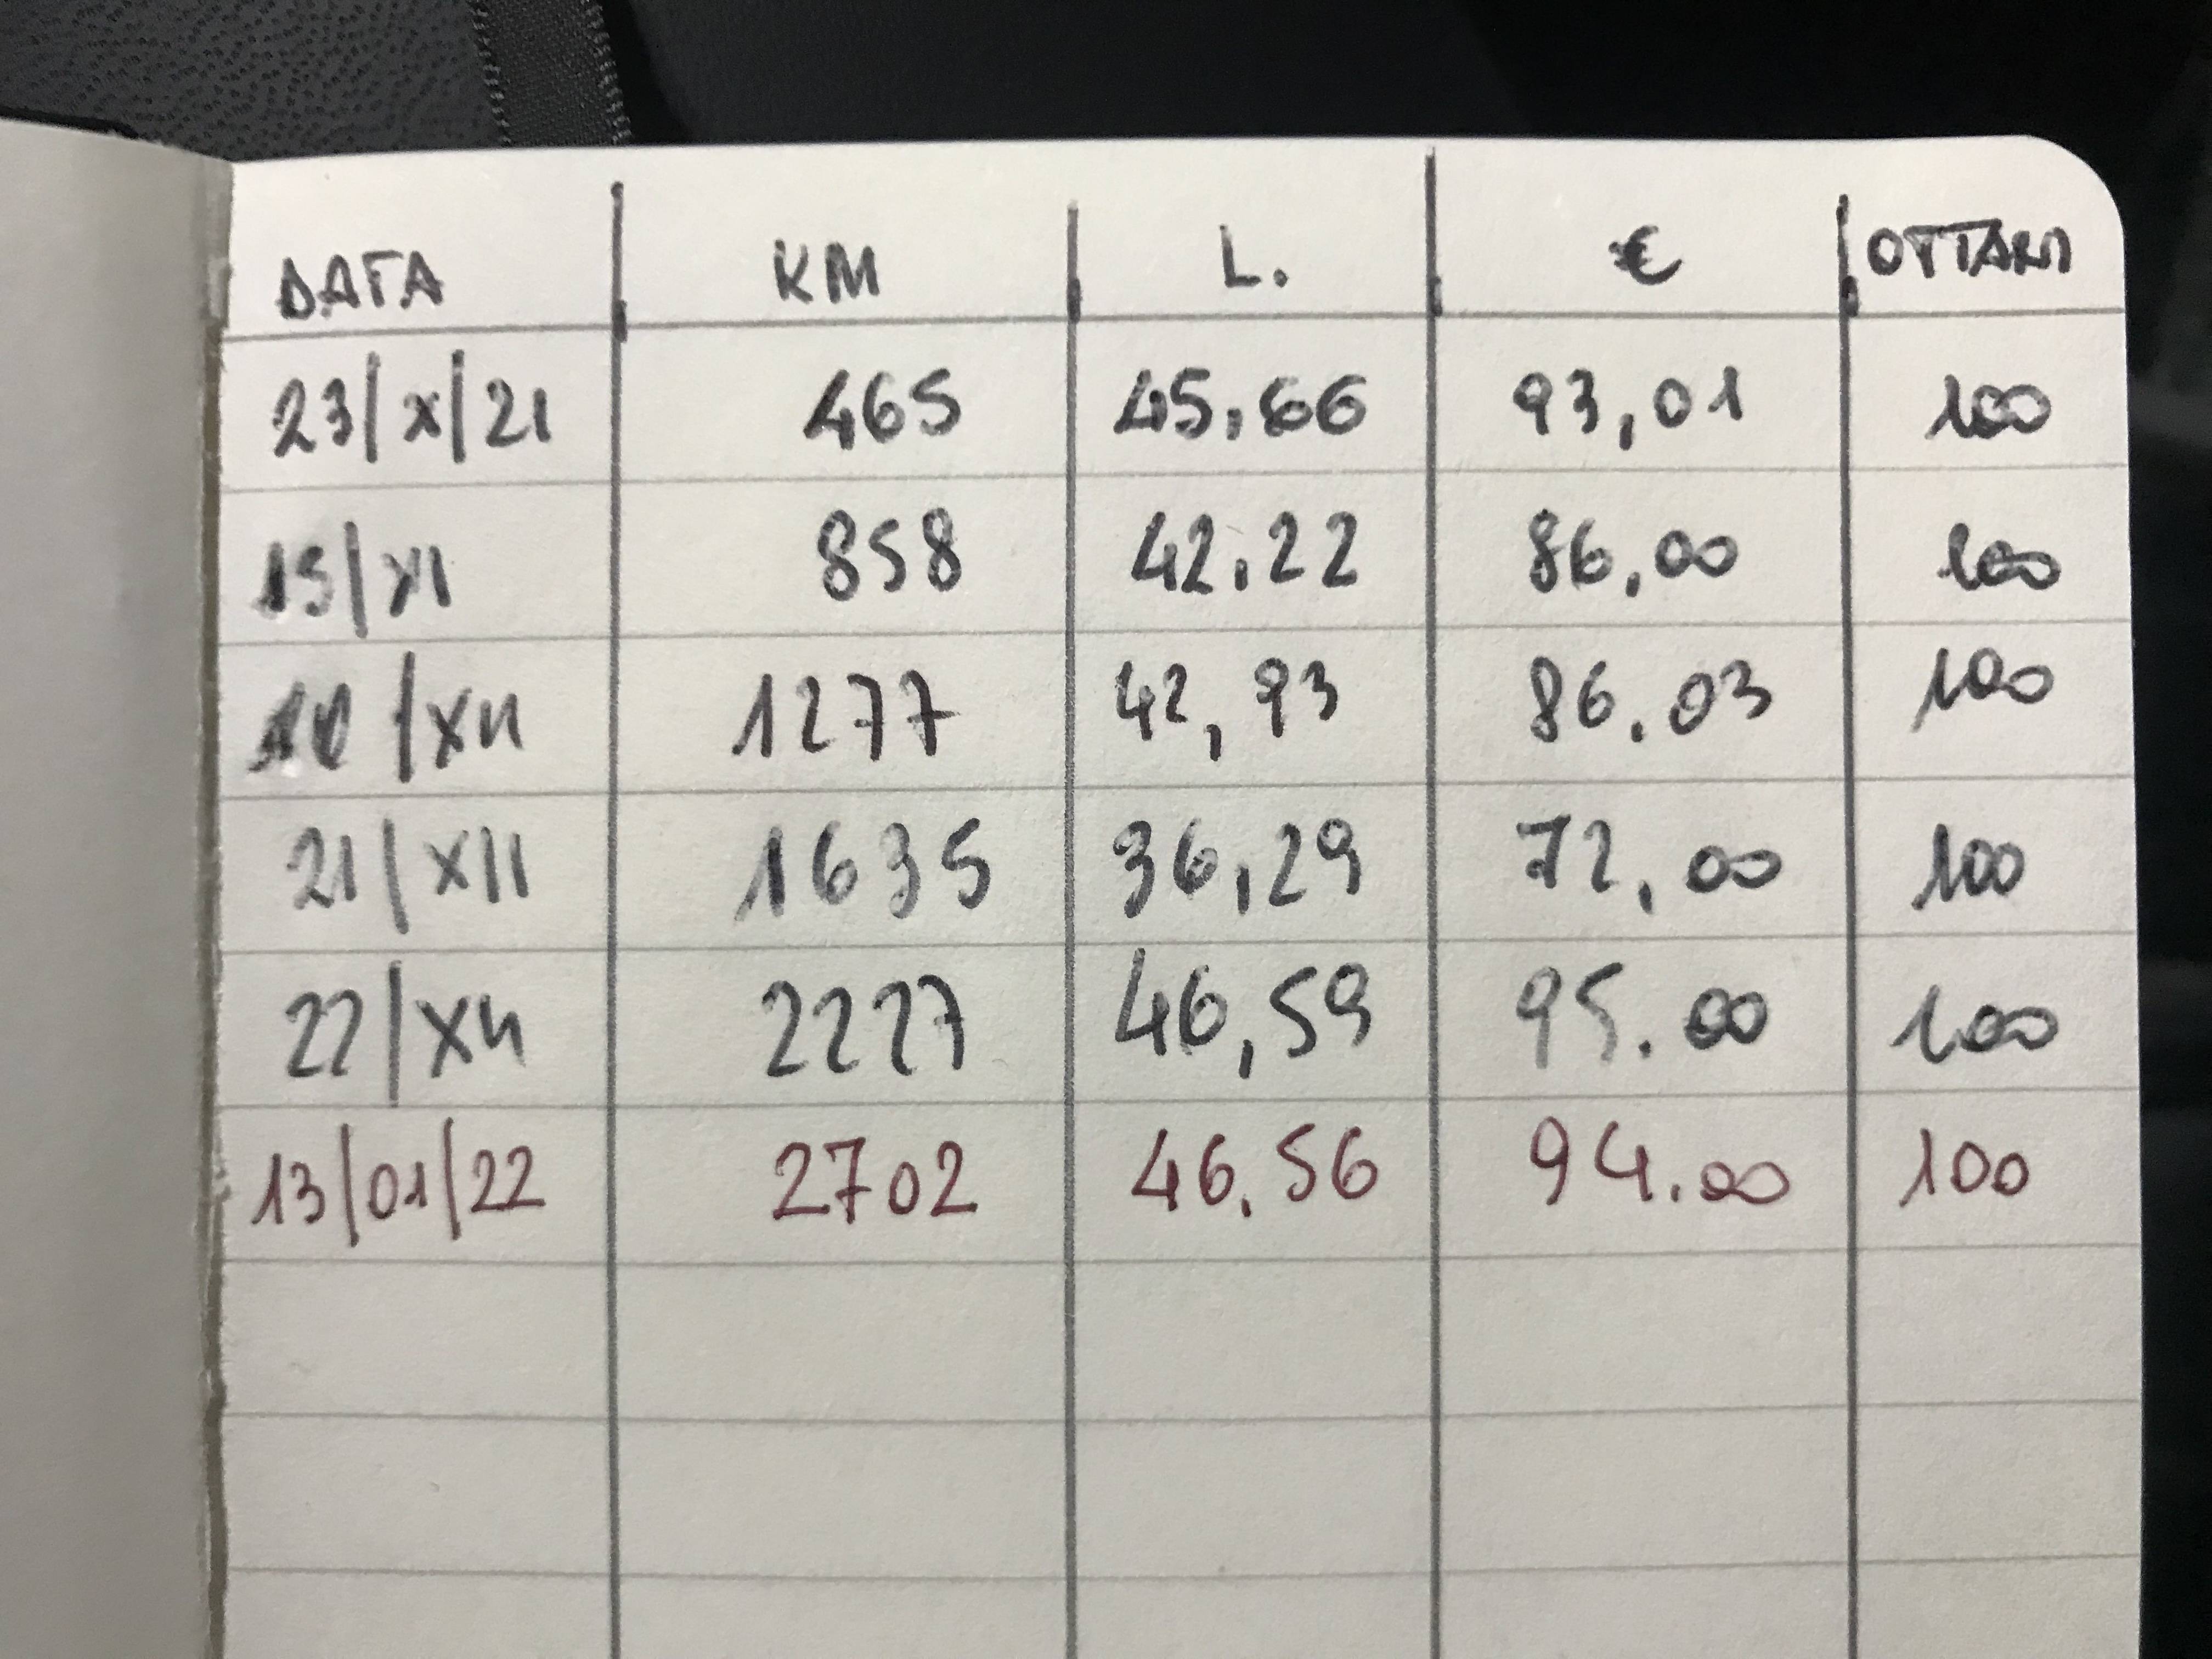 DATA KM L. € OTTANI
23/X/21 465 45,66 93,01 100
15/XI 858 42,22 86,00 100
/XII 1277 42,93 86.03 100
21/XII 1635 36,29 72,00 100
22/XII 2227 46,59 95.00 100
13/01/22 2702 46.56 94.00 100